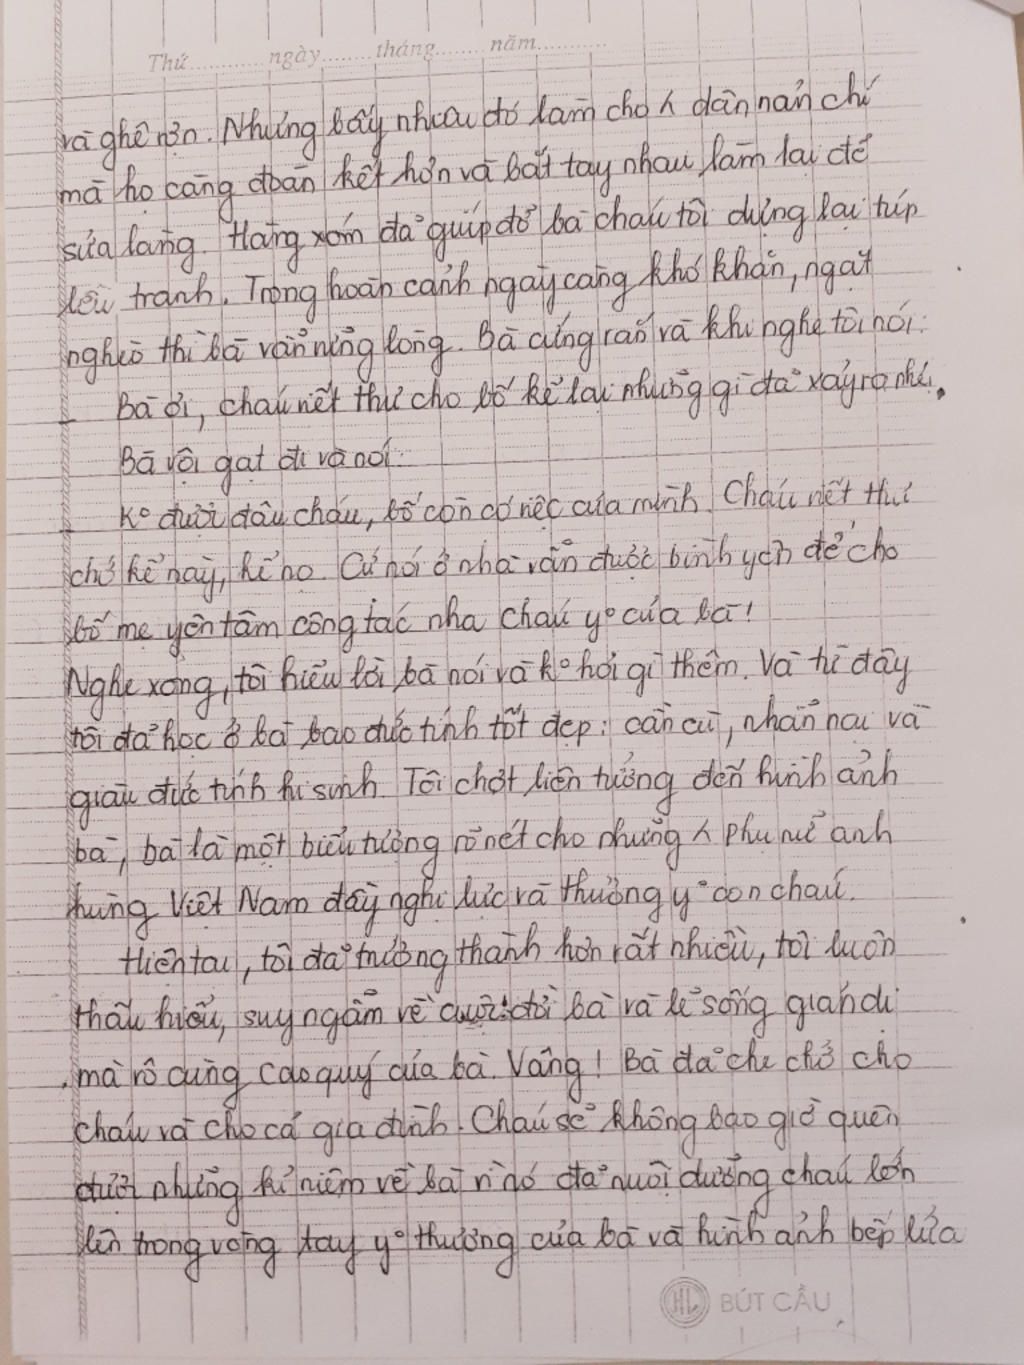 Thứ............ngày........tháng........năm............
và ghê rợn. Nhưng bấy nhiêu đó làm cho ʎ dân nản chí
mà họ càng đoàn kết hơn và bắt tay nhau làm lại để
sửa làng. Hàng xóm đã giúp đỡ bà cháu tôi dựng lại túp
lều tranh. Trong hoàn cảnh ngày càng khó khăn, ngặt
nghèo thì bà vẫn vững lòng. Bà cứng rắn và khi nghe tôi nói:
- Bà ơi, cháu viết thư cho bố kể lại những gì đã xảy ra nhé.
Bà vội gạt đi và nói:
- K° được đâu cháu, bố còn có việc của mình. Cháu viết thư
chớ kể này, kể nọ. Cứ nói ở nhà vẫn được bình yên để cho
bố mẹ yên tâm công tác nha cháu y° của bà!
Nghe xong, tôi hiểu lời bà nói và k° hỏi gì thêm. Và từ đây
tôi đã học ở bà bao đức tính tốt đẹp: cần cù, nhẫn nại và
giàu đức tính hi sinh. Tôi chợt liên tưởng đến hình ảnh
bà, bà là một biểu tượng rõ nét cho những ʎ phụ nữ anh
hùng Việt Nam đầy nghị lực và thương y° con cháu.
Hiện tại, tôi đã trưởng thành hơn rất nhiều, tôi luôn
thấu hiểu, suy ngẫm về cuộc đời bà và lẽ sống giản dị
mà vô cùng cao quý của bà. Vâng! Bà đã che chở cho
cháu và cho cả gia đình. Cháu sẽ không bao giờ quên
được những kỉ niệm về bà vì nó đã nuôi dưỡng cháu lớn
lên trong vòng tay y° thương của bà và hình ảnh bếp lửa
HL BÚT CẦU